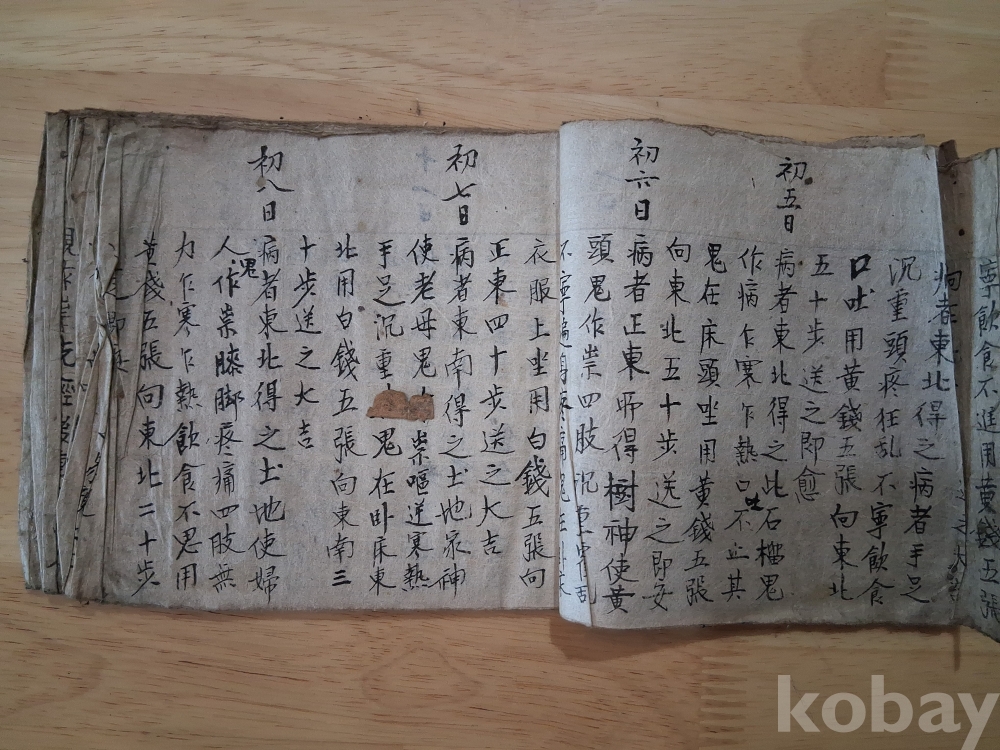 寧飲食不進用黃錢五張
病者東北得之病者手足
沉重頭疼狂乱不寧飲食
口吐用黃錢五張向東北
五十步送之即愈
初五日
病者東北得之此石榴鬼
作病乍寒乍熱口吐不止其
鬼在床頭坐用黃錢五張
向東北五十步送之即安
初六日
病者正東得樹神使黃
頭鬼作祟四肢沉重
衣服上坐用白錢五張向
正東四十步送之大吉
初七日
病者東南得之土地家神
使老母鬼祟嘔逆寒熱
手足沉重鬼在卧床東
北用白錢五張向東南三
十步送之大吉
初八日
病者東北得之土地使婦
人鬼作祟膝脚疼痛四肢無
力乍寒乍熱飲食不思用
黃錢五張向東北二十步
kobay